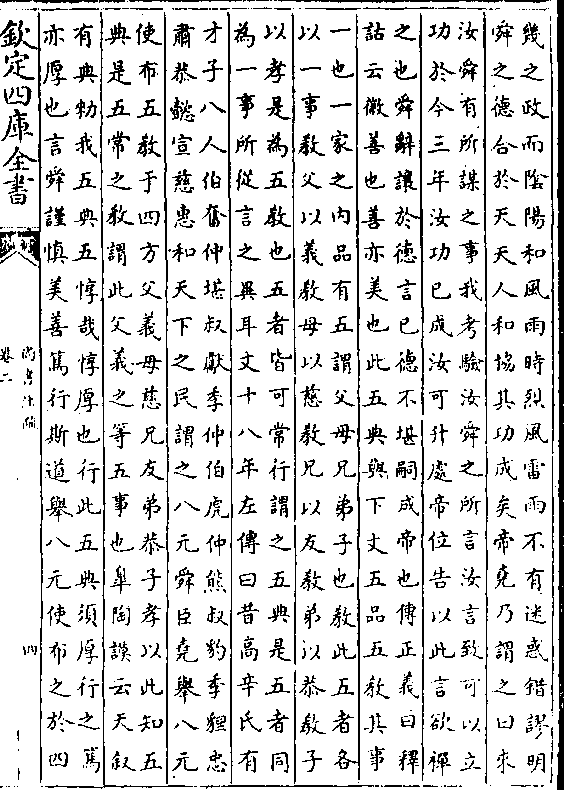 幾之政而陰陽和風雨時烈風雷雨不有迷惑錯謬明
舜之德合於天天人和協其功成矣帝堯乃謂之曰來
汝舜有所謀之事我考驗汝舜之所言汝言致可以立
功於今三年汝功已成汝可升處帝位告以此言欲禪
之也舜辭讓於德言已德不堪嗣成帝也傳正義曰釋
詁云徽善也善亦美也此五典與下文五品五教其事
一也一家之內品有五謂父母兄弟子也教此五者各
以一事教父以義教母以慈教兄以友教弟以恭教子
以孝是為五教也五者皆可常行謂之五典是五者同
為一事所從言之異耳文十八年左傳曰昔高辛氏有
才子八人伯奮仲堪叔獻季仲伯虎仲熊叔豹季貍忠
肅恭懿宣慈惠和天下之民謂之八元舜臣堯舉八元
使布五教于四方父義母慈兄友弟恭子孝以此知五
典是五常之教謂此父義之等五事也臯陶謨云天叙
有典勑我五典五惇哉惇厚也行此五典須厚行之篤
亦厚也言舜謹慎美善篤行斯道舉八元使布之於四
欽定四庫全書
尚書注疏
卷二
四